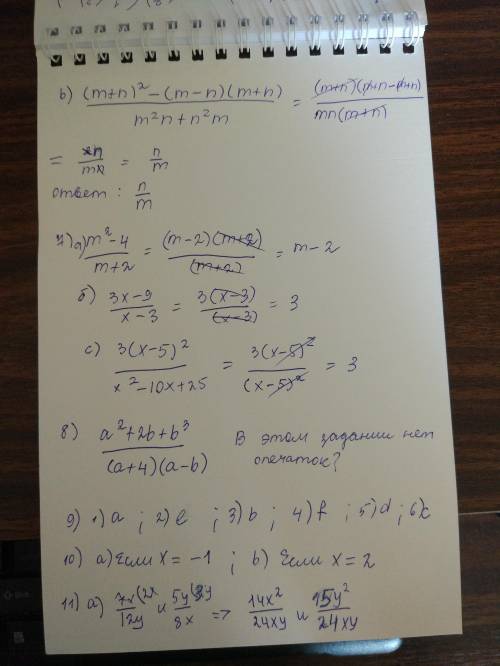 b) ((m+n)² − (m−n)(m+n)) / (m²n + n²m) = (m+n)(m+n−m+n) / mn(m+n)
= n / m = n/m
ответ : n/m
7) а) (m²−4) / (m+2) = (m−2)(m+2) / (m+2) = m−2
б) (3x−9) / (x−3) = 3(x−3) / (x−3) = 3
c) 3(x−5)² / (x²−10x+25) = 3(x−5)² / (x−5)² = 3
8) (a²+2b+b³) / (a+4)(a−b) В этом задании нет
опечаток?
9) 1) a ; 2) e ; 3) b ; 4) f ; 5) d ; 6) c
10) a) Если x = −1 ; b) Если x = 2
11) a) 7x(2x / 12y и 5y(3y / 8x => 14x² / 24xy и 15y² / 24xy